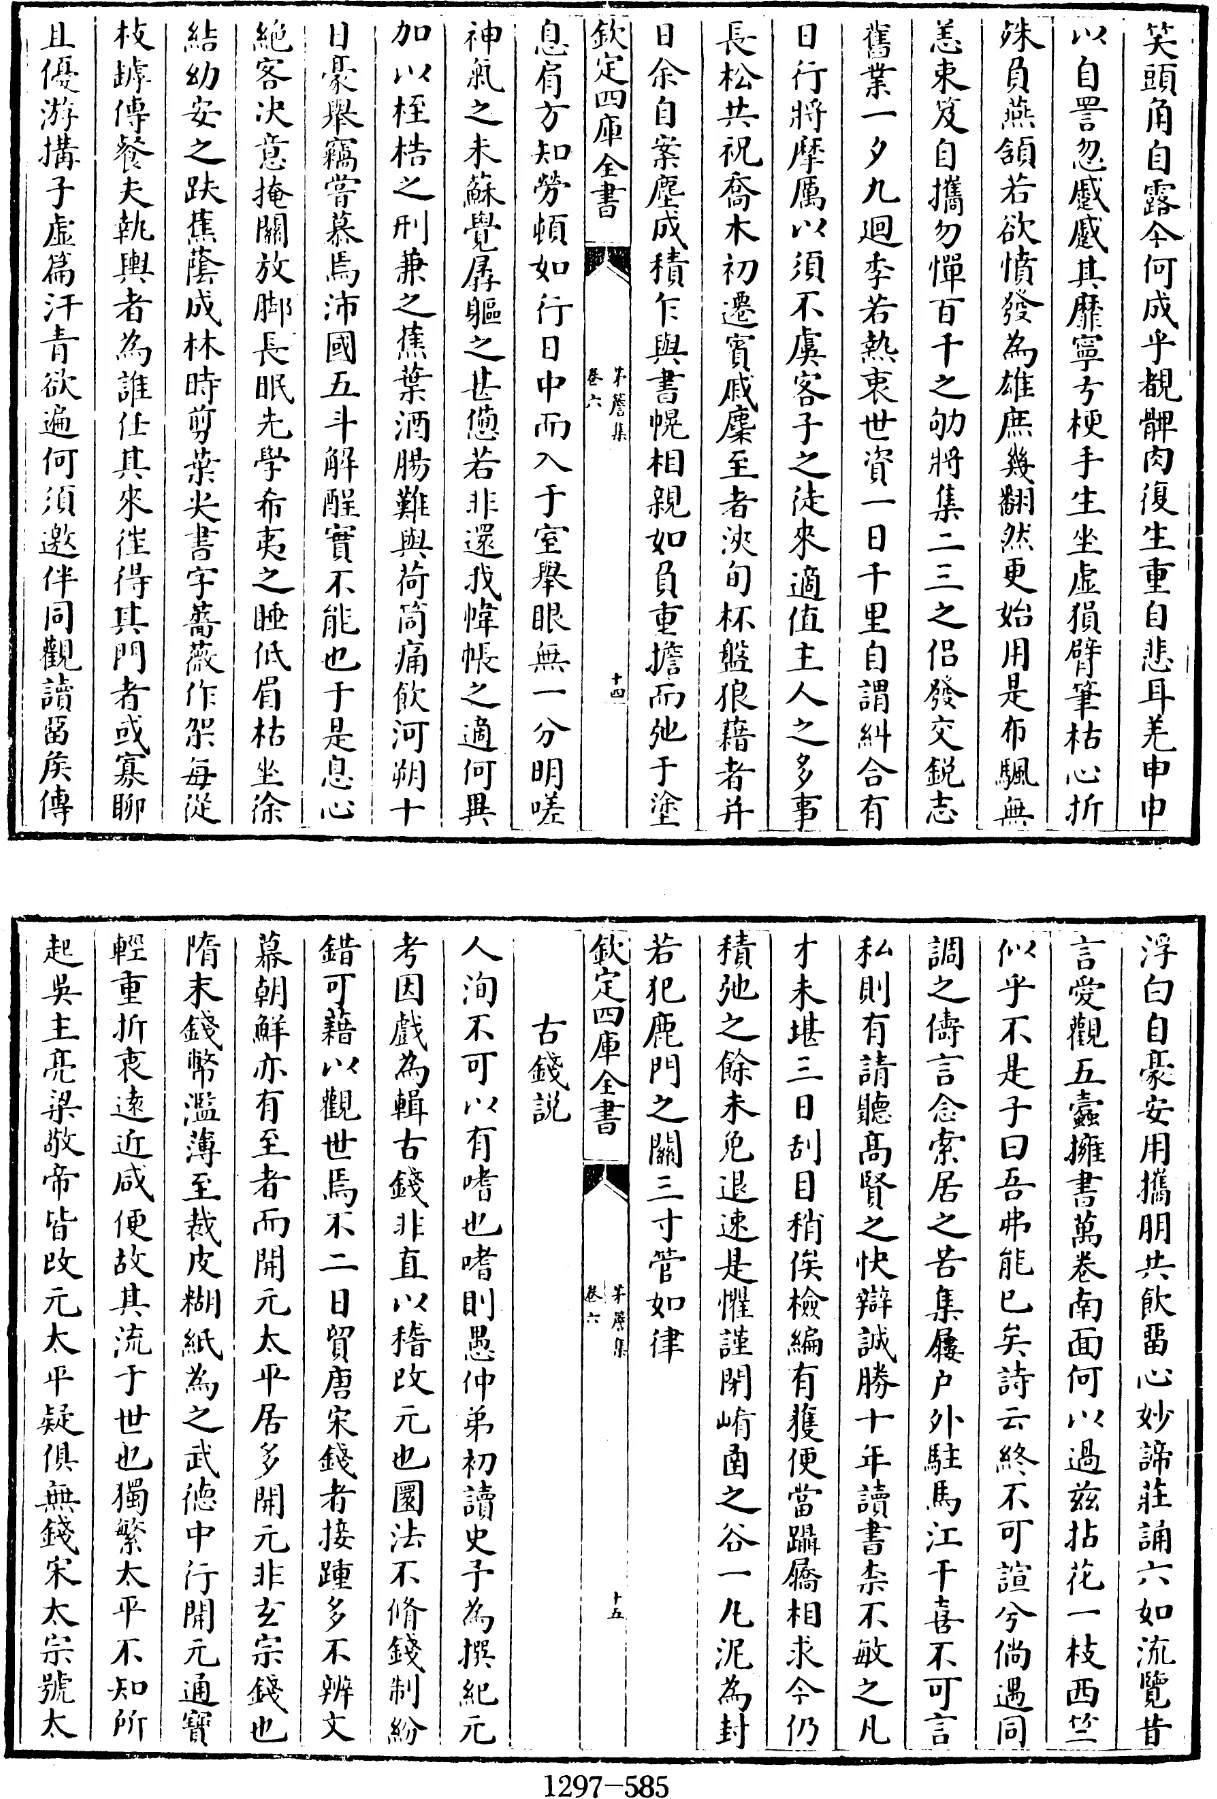 笑頭角自露今何成乎覩髀肉復生重自悲耳羌申申
以自詈忽蹙蹙其靡寧亏梗手生坐虚損臂筆枯心折
殊負燕頷若欲憤發為雄庶幾翻然更始用是布颿無
恙束笈自攜勿憚百千之劬將集二三之侶發交鋭志
舊業一夕九迴季若熱衷世資一日千里自謂糾合有
日行將摩厲以須不虞客子之徒來適值主人之多事
長松共祝喬木初遷賓戚麇至者浹旬杯盤狼藉者并
日余自案塵成積乍與書幌相親如負重擔而弛于塗
欽定四庫全書
茅簷集
卷六
十四
息肩方知勞頓如行日中而入于室舉眼無一分明嗟
神氣之未蘇覺孱軀之甚憊若非還我幃帳之適何異
加以桎梏之刑兼之蕉葉酒腸難與荷筒痛飲河朔十
日豪舉竊嘗慕焉沛國五斗解酲實不能也于是息心
絶客决意掩關放脚長眠先學希夷之睡低眉枯坐徐
結幼安之趺蕉蔭成林時剪葉尖書字薔薇作架每從
枝罅傳餐夫執輿者為誰任其來徃得其門者或寡聊
且優游搆子虚篇汗青欲遍何須邀伴同觀讀留矦傳
浮白自豪安用攜朋共飲畱心妙諦莊誦六如流覽昔
言愛觀五蠹擁書萬卷南面何以過兹拈花一枝西竺
似乎不是子曰吾弗能已矣詩云終不可諠兮倘遇同
調之儔言念索居之苦集屨户外駐馬江干喜不可言
私則有請聽髙賢之快辯誠勝十年讀書柰不敏之凡
才未堪三日刮目稍俟檢編有獲便當躡屩相求今仍
積弛之餘未免退速是懼謹閉崤凾之谷一凡泥為封
若犯鹿門之關三寸管如律
欽定四庫全書
茅簷集
卷六
十五
古錢説
人洵不可以有嗜也嗜則愚仲弟初讀史予為撰紀元
考因戲為輯古錢非直以稽改元也圜法不脩錢制紛
錯可藉以觀世焉不二日貿唐宋錢者接踵多不辨文
幕朝鮮亦有至者而開元太平居多開元非玄宗錢也
隋末錢幣濫薄至裁皮糊紙為之武徳中行開元通寳
輕重折衷遠近咸便故其流于世也獨繁太平不知所
起吳主亮梁敬帝皆改元太平疑俱無錢宋太宗號太
1297-585